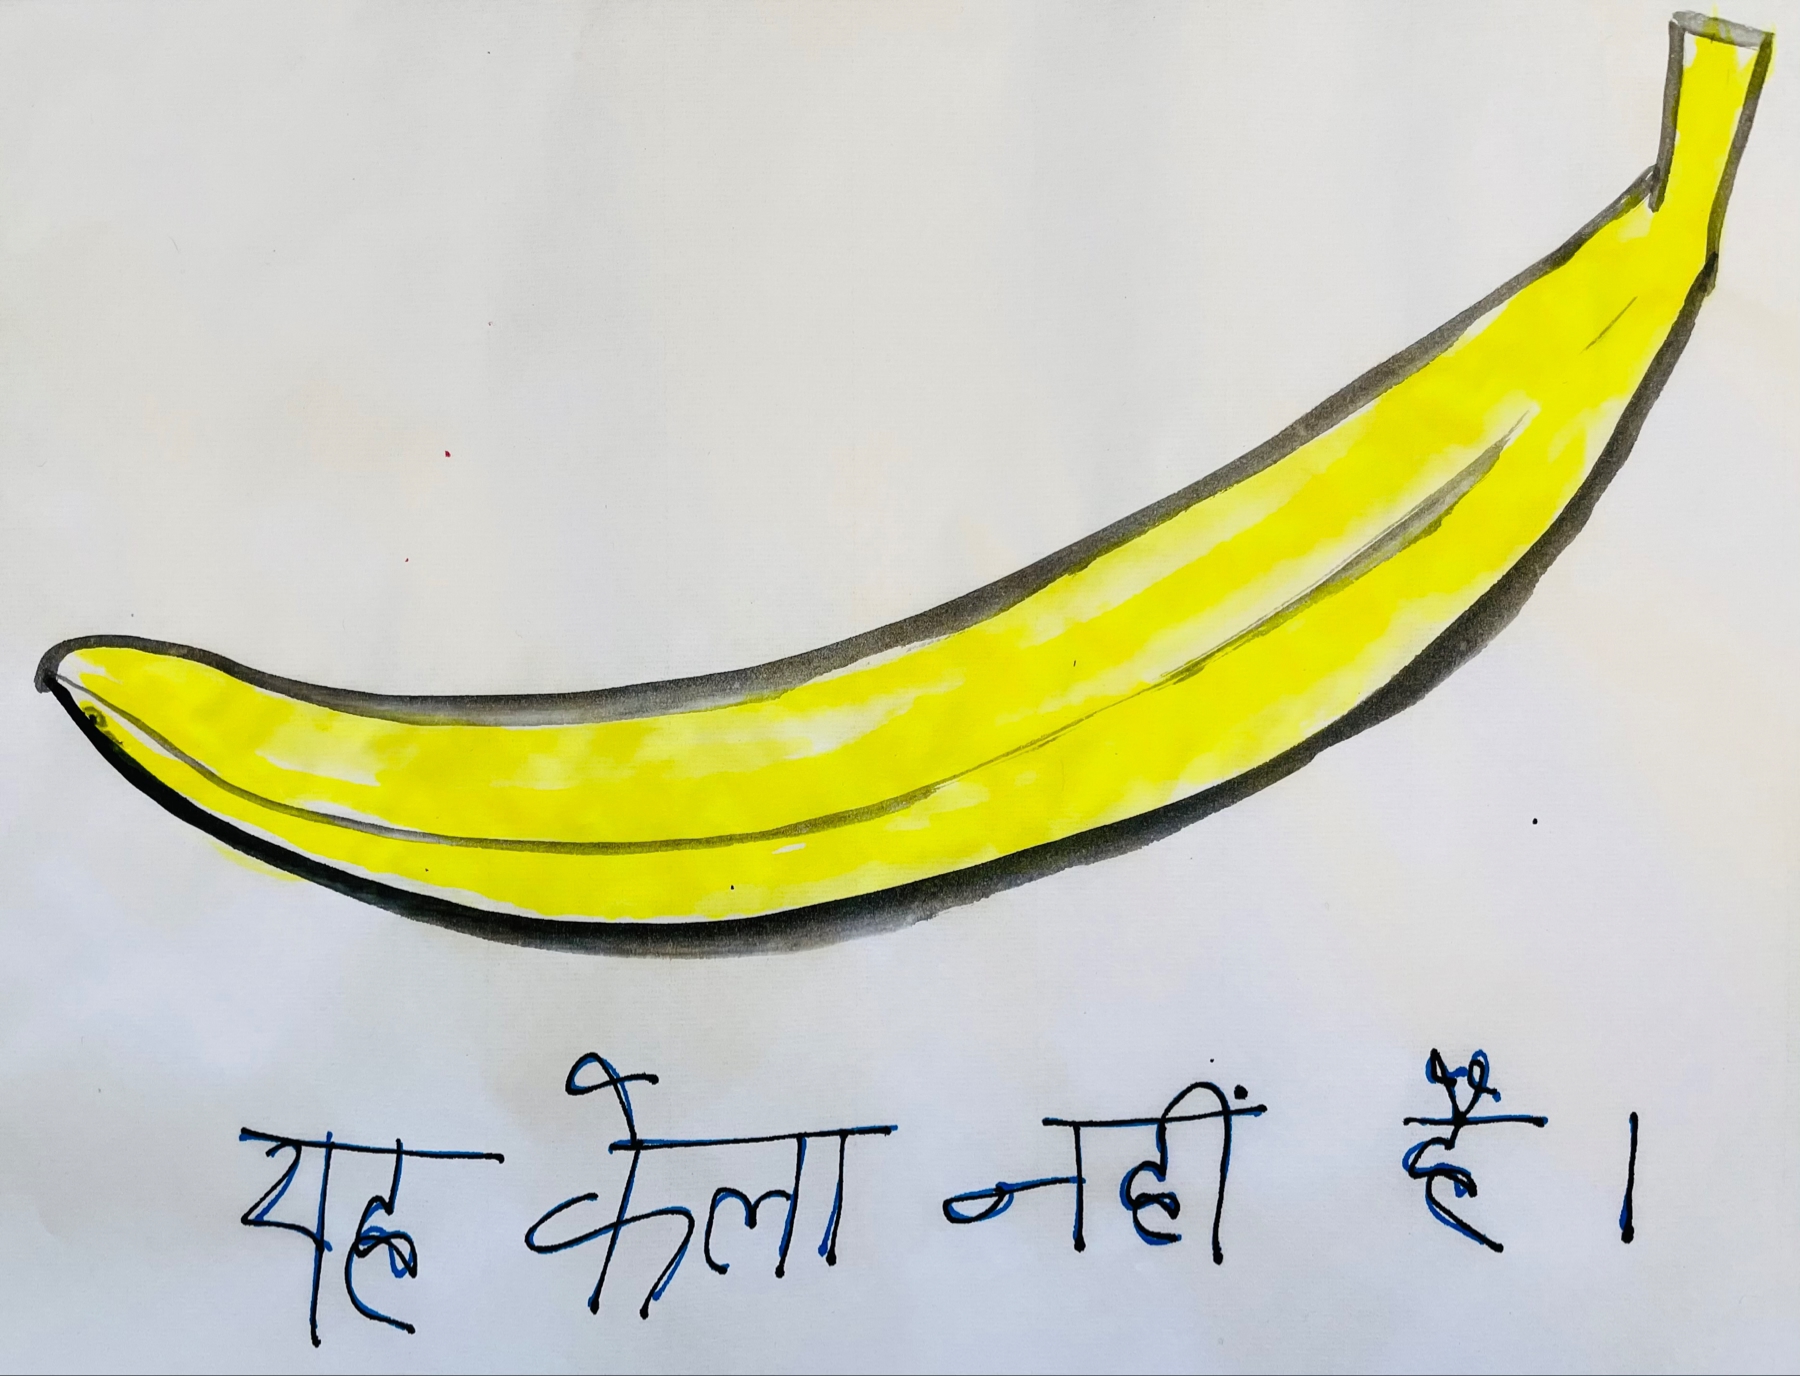 यह केला नहीं है।